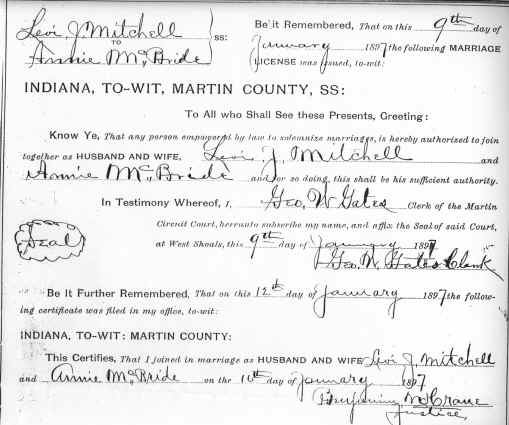 Levi J. Mitchell
TO
Annie McBride
SS:
Be it Remembered, That on this 9th day of
January 1897 the following MARRIAGE
LICENSE was issued, to-wit:
INDIANA, TO-WIT, MARTIN COUNTY, SS:
To All who Shall See these Presents, Greeting:
Know Ye, That any person empowered by law to solemnize marriages, is hereby authorized to join
together as HUSBAND AND WIFE, Levi J. Mitchell and
Annie McBride and for so doing, this shall be his sufficient authority.
In Testimony Whereof, I, Geo. W. Gates Clerk of the Martin
Circuit Court, hereunto subscribe my name, and affix the Seal of said Court,
Seal
at West Shoals, this 9th day of January 1897
Geo. W. Gates Clerk
Be It Further Remembered, That on this 12th day of January 1897 the follow-
ing certificate was filed in my office, to-wit:
INDIANA, TO-WIT: MARTIN COUNTY:
This Certifies, That I joined in marriage as HUSBAND AND WIFE Levi J. Mitchell
and Annie McBride on the 10th day of January 1897
Crane
Justice